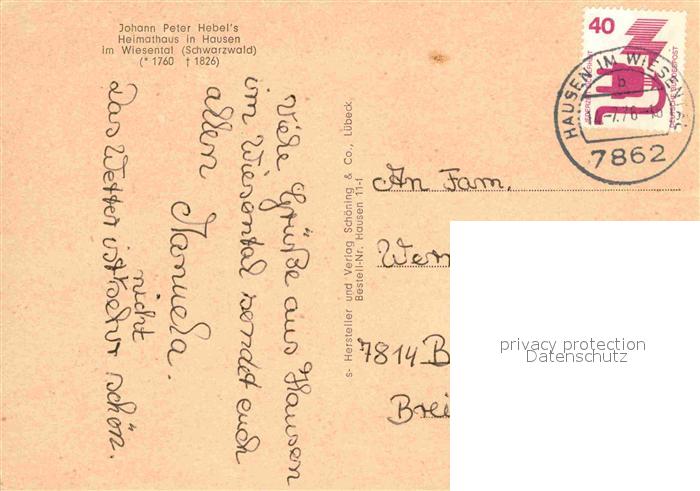 Johann Peter Hebel's
Heimathaus in Hausen
im Wiesental (Schwarzwald)
(* 1760 † 1826)
Viele Grüße aus Hausen
im Wiesental sendet euch
allen
Manuela.
Das Wetter ist nicht sehr schön.
s- Hersteller und Verlag Schöning & Co., Lübeck
Bestell-Nr. Hausen 11-f
40
JEDERZEIT SICHERHEIT
DEUTSCHE BUNDESPOST
HAUSEN IM WIESE
b
7.76-18
7862
An Fam.
Wer
7814 B
Brei
privacy protection
Datenschutz